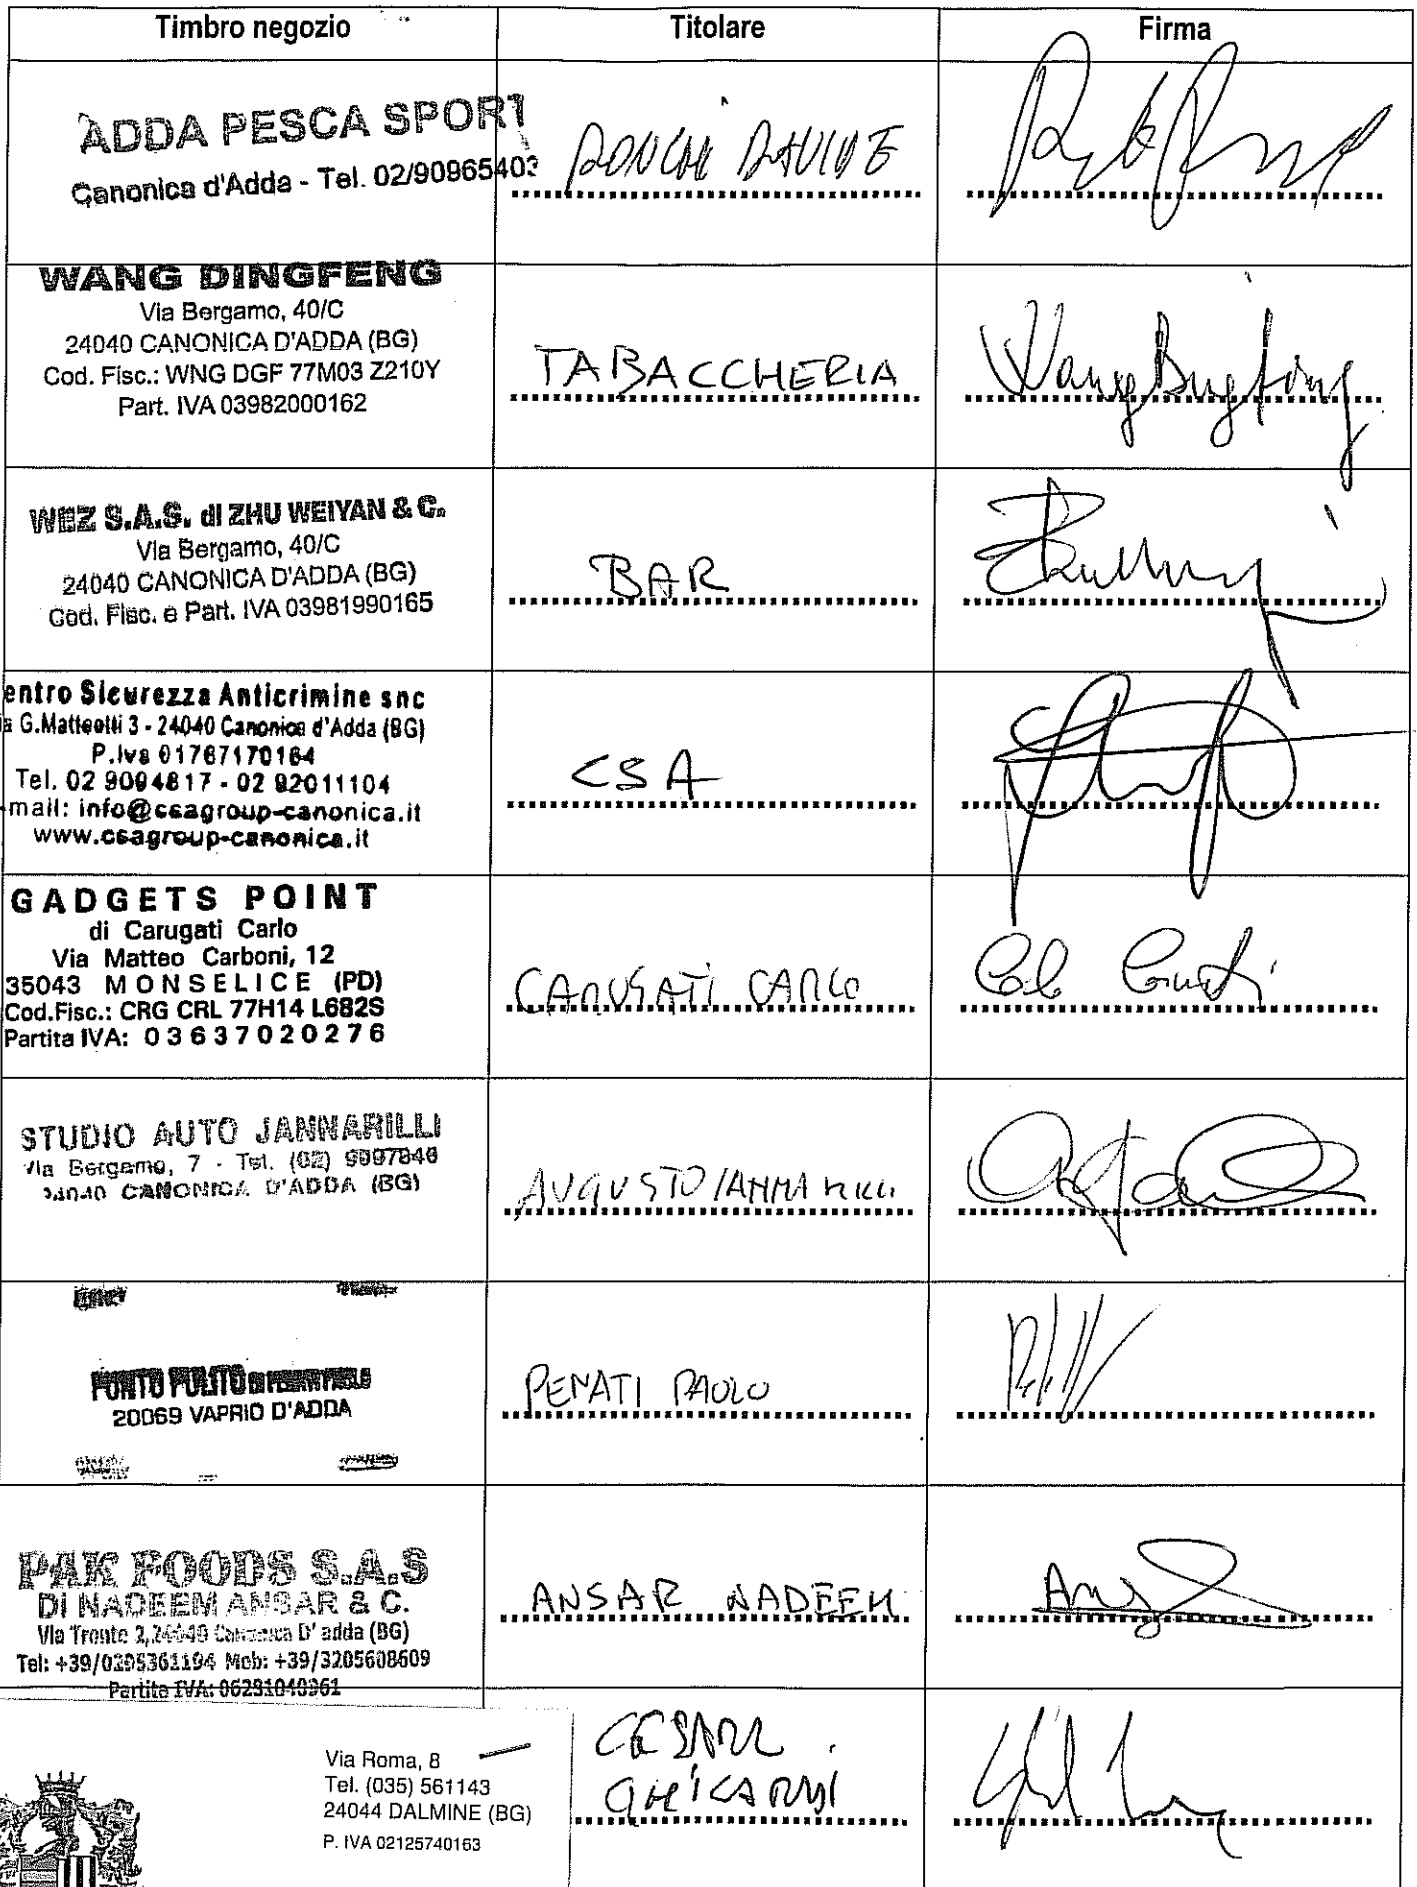 Timbro negozio Titolare Firma
ADDA PESCA SPORT
Canonica d'Adda - Tel. 02/90965403
RONCHI DAVIDE
WANG DINGFENG
Via Bergamo, 40/C
24040 CANONICA D'ADDA (BG)
Cod. Fisc.: WNG DGF 77M03 Z210Y
Part. IVA 03982000162
TABACCHERIA
WEZ S.A.S. di ZHU WEIYAN & C.
Via Bergamo, 40/C
24040 CANONICA D'ADDA (BG)
Cod. Fisc. e Part. IVA 03981990165
BAR
entro Sicurezza Anticrimine snc
ia G.Matteotti 3 - 24040 Canonica d'Adda (BG)
P.Iva 01767170164
Tel. 02 9094817 - 02 92011104
-mail: info@csagroup-canonica.it
www.csagroup-canonica.it
CSA
GADGETS POINT
di Carugati Carlo
Via Matteo Carboni, 12
35043 MONSELICE (PD)
Cod.Fisc.: CRG CRL 77H14 L682S
Partita IVA: 03637020276
CARUGATI CARLO
STUDIO AUTO JANNARILLI
Via Bergamo, 7 - Tel. (02) 9097846
24040 CANONICA D'ADDA (BG)
AUGUSTO
PUNTO PULITO
20069 VAPRIO D'ADDA
PENATI PAOLO
PAK FOODS S.A.S
DI NADEEM ANSAR & C.
Via Trento 2, 24040 Canonica D' adda (BG)
Tel: +39/0295361194 Mob: +39/3205608609
Partita IVA: 06291040961
ANSAR NADEEM
Via Roma, 8
Tel. (035) 561143
24044 DALMINE (BG)
P. IVA 02125740163
CESARE